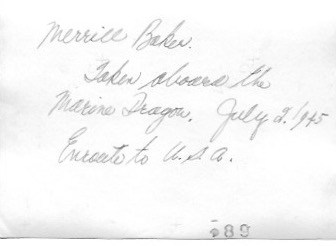 Merrill Baker.
Taken aboard the
Marine Dragon. July 2. 1945
Enroute to U.S.A.
89